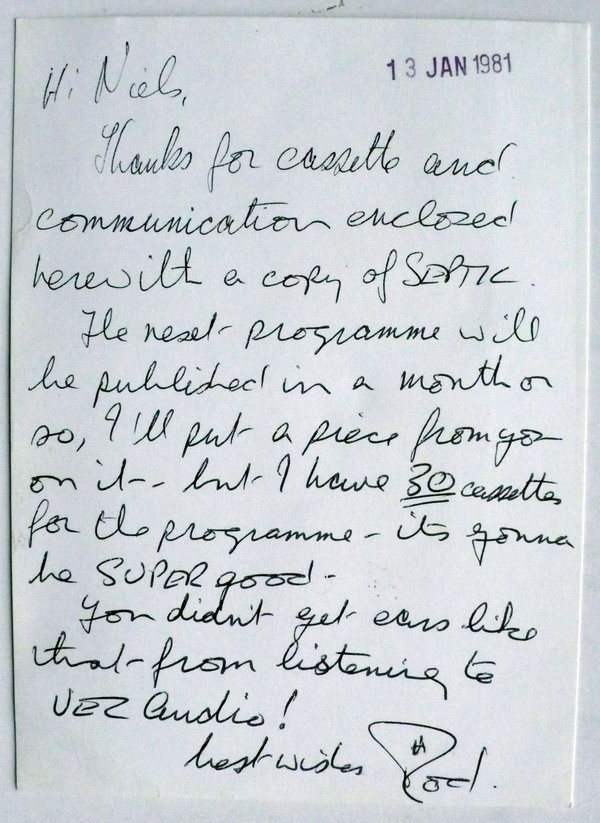 13 JAN 1981
Hi Niels,
Thanks for cassette and
communication enclosed
herewith a copy of SEPTIC.
The next programme will
be published in a month or
so, I'll put a piece from you
on it - but I have 30 cassettes
for the programme - its gonna
be SUPER good -
You didn't get ears like
that - from listening to
VEZ Audio!
best wishes Rod.